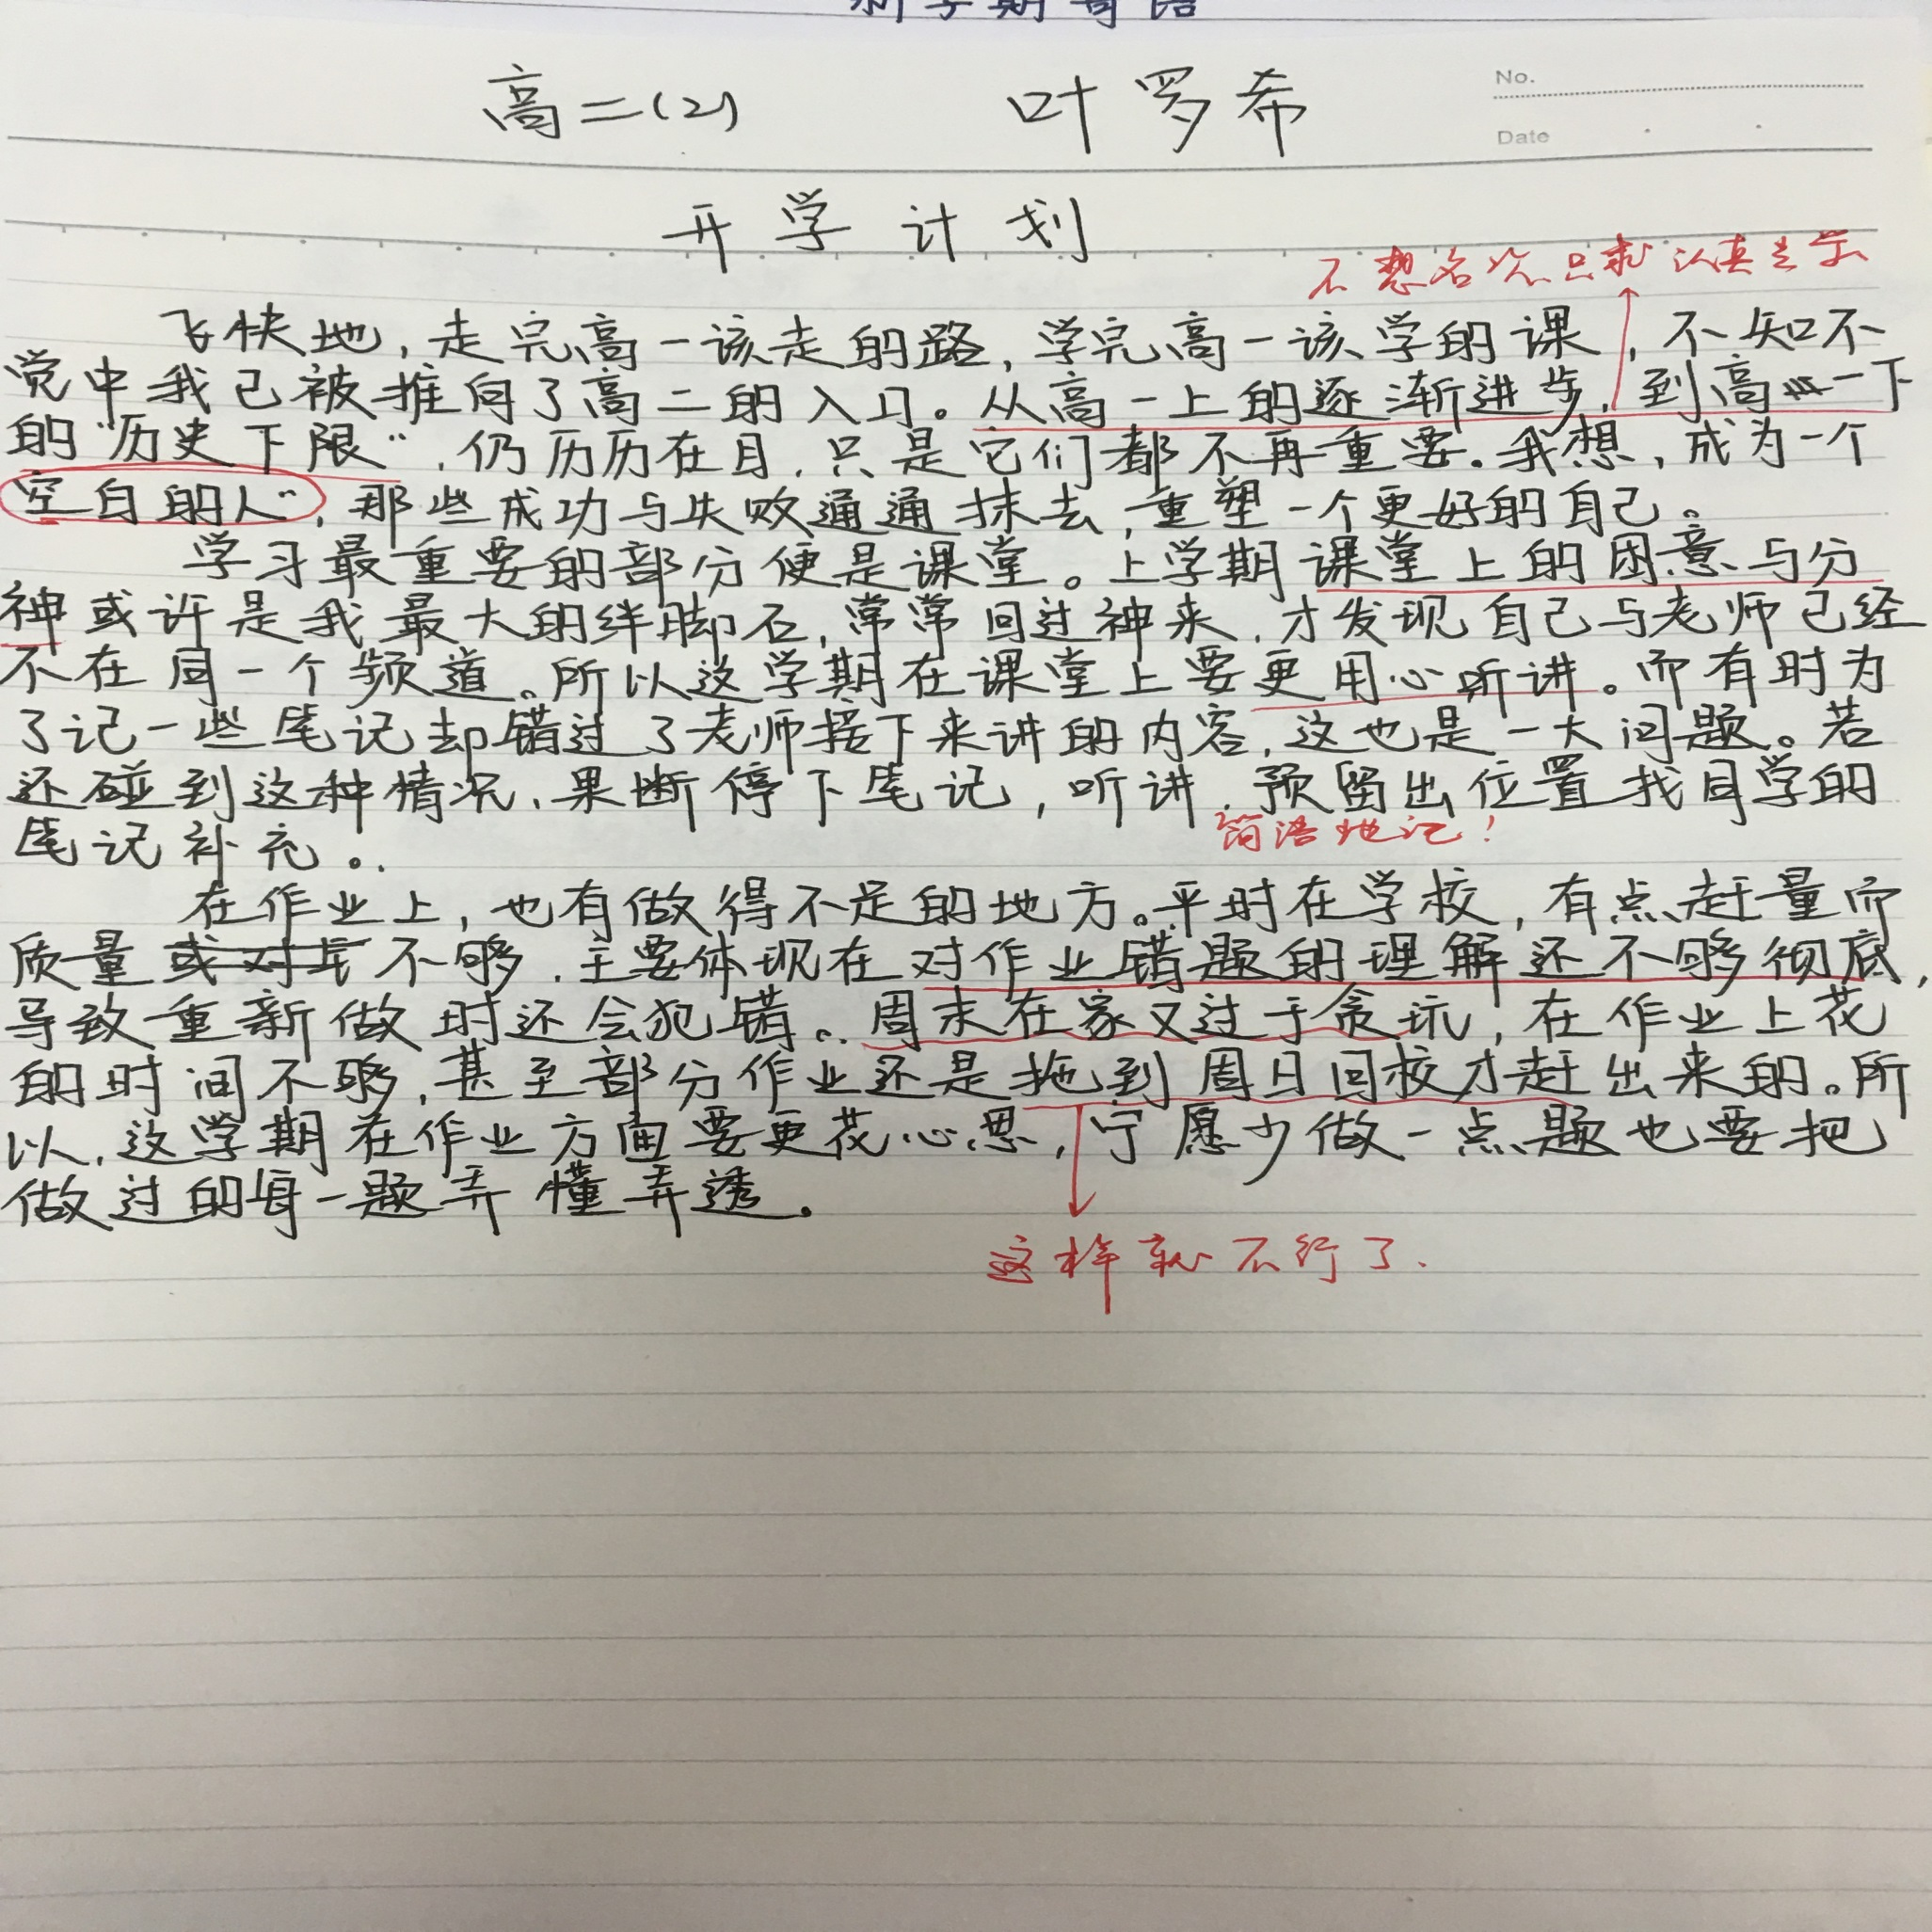 新学期寄语
高二(2) 叶罗希
No.
Date
开学计划
不想名次只求认真去学
飞快地，走完高一该走的路，学完高一该学的课，不知不
觉中我已被推向了高二的入口。从高一上的逐渐进步，到高一下
的“历史下限”，仍历历在目，只是它们都不再重要。我想，成为一个
空白的人”，那些成功与失败通通抹去，重塑一个更好的自己。
学习最重要的部分便是课堂。上学期课堂上的困意与分
神或许是我最大的绊脚石，常常回过神来，才发现自己与老师已经
不在同一个频道。所以这学期在课堂上要更用心听讲。而有时为
了记一些笔记却错过了老师接下来讲的内容，这也是一大问题。若
还碰到这种情况，果断停下笔记，听讲，预留出位置找同学的
简洁地记！
笔记补充。
在作业上，也有做得不足的地方。平时在学校，有点赶量而
质量不够，主要体现在对作业错题的理解还不够彻底，
导致重新做时还会犯错。周末在家又过于贪玩，在作业上花
的时间不够，甚至部分作业还是拖到周日回校才赶出来的。所
以，这学期在作业方面要更花心思，宁愿少做一点题也要把
做过的每一题弄懂弄透。
这样就不行了．